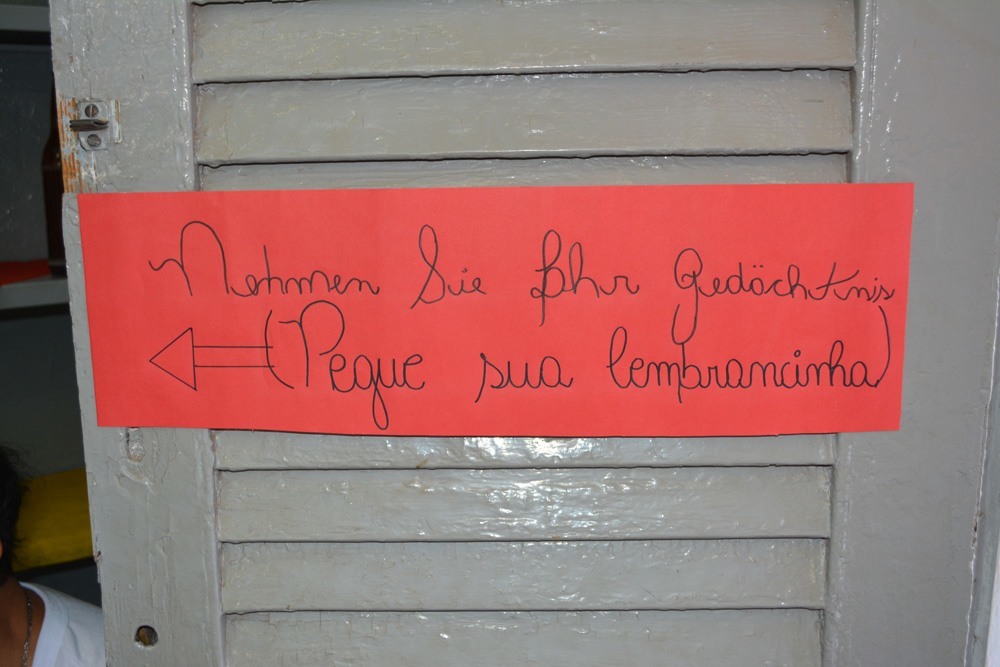 Nehmen Sie Ihr Gedächtnis
(Pegue sua lembrancinha)